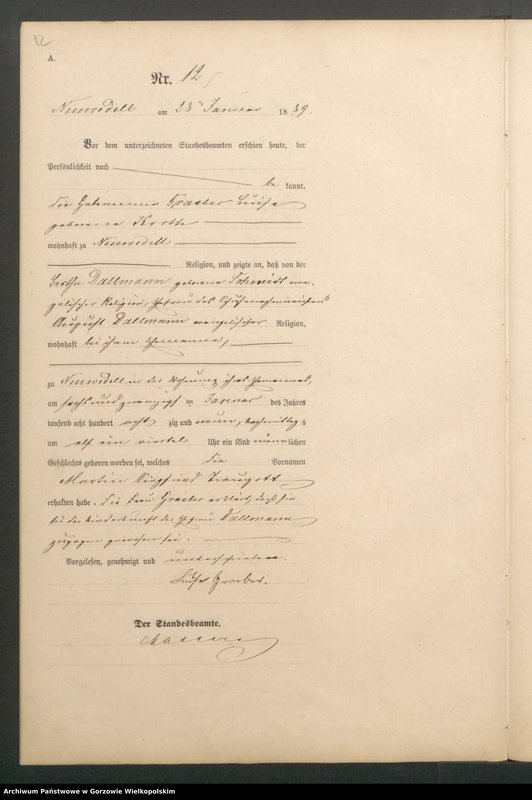 12
A.
Nr. 12
Neuwedell am 28ten Januar 1889.
Vor dem unterzeichneten Standesbeamten erschien heute, der
Persönlichkeit nach
bekannt,
die Hebamme Graeber Luise
geborene Korth
wohnhaft zu Neuwedell
Religion, und zeigte an, daß von der
Bertha Dallmann geborene Schmidt evan-
gelischer Religion, Ehefrau des Schuhmachermeisters
August Dallmann evangelischer Religion,
wohnhaft bei ihrem Ehemanne,
zu Neuwedell in der Wohnung ihres Ehemannes,
am sechsundzwanzigsten Januar des Jahres
tausend acht hundert achtzig und neun, Nachmittags
um elf ein viertel Uhr ein Kind männlichen
Geschlechts geboren worden sei, welches die Vornamen
Martin Siegfried Traugott
erhalten habe. Die Frau Graeber erklärt, daß sie
bei der Niederkunft der Ehefrau Dallmann
zugegen gewesen sei.
Vorgelesen, genehmigt und unterschrieben.
Luise Graeber.
Der Standesbeamte.
Archiwum Państwowe w Gorzowie Wielkopolskim